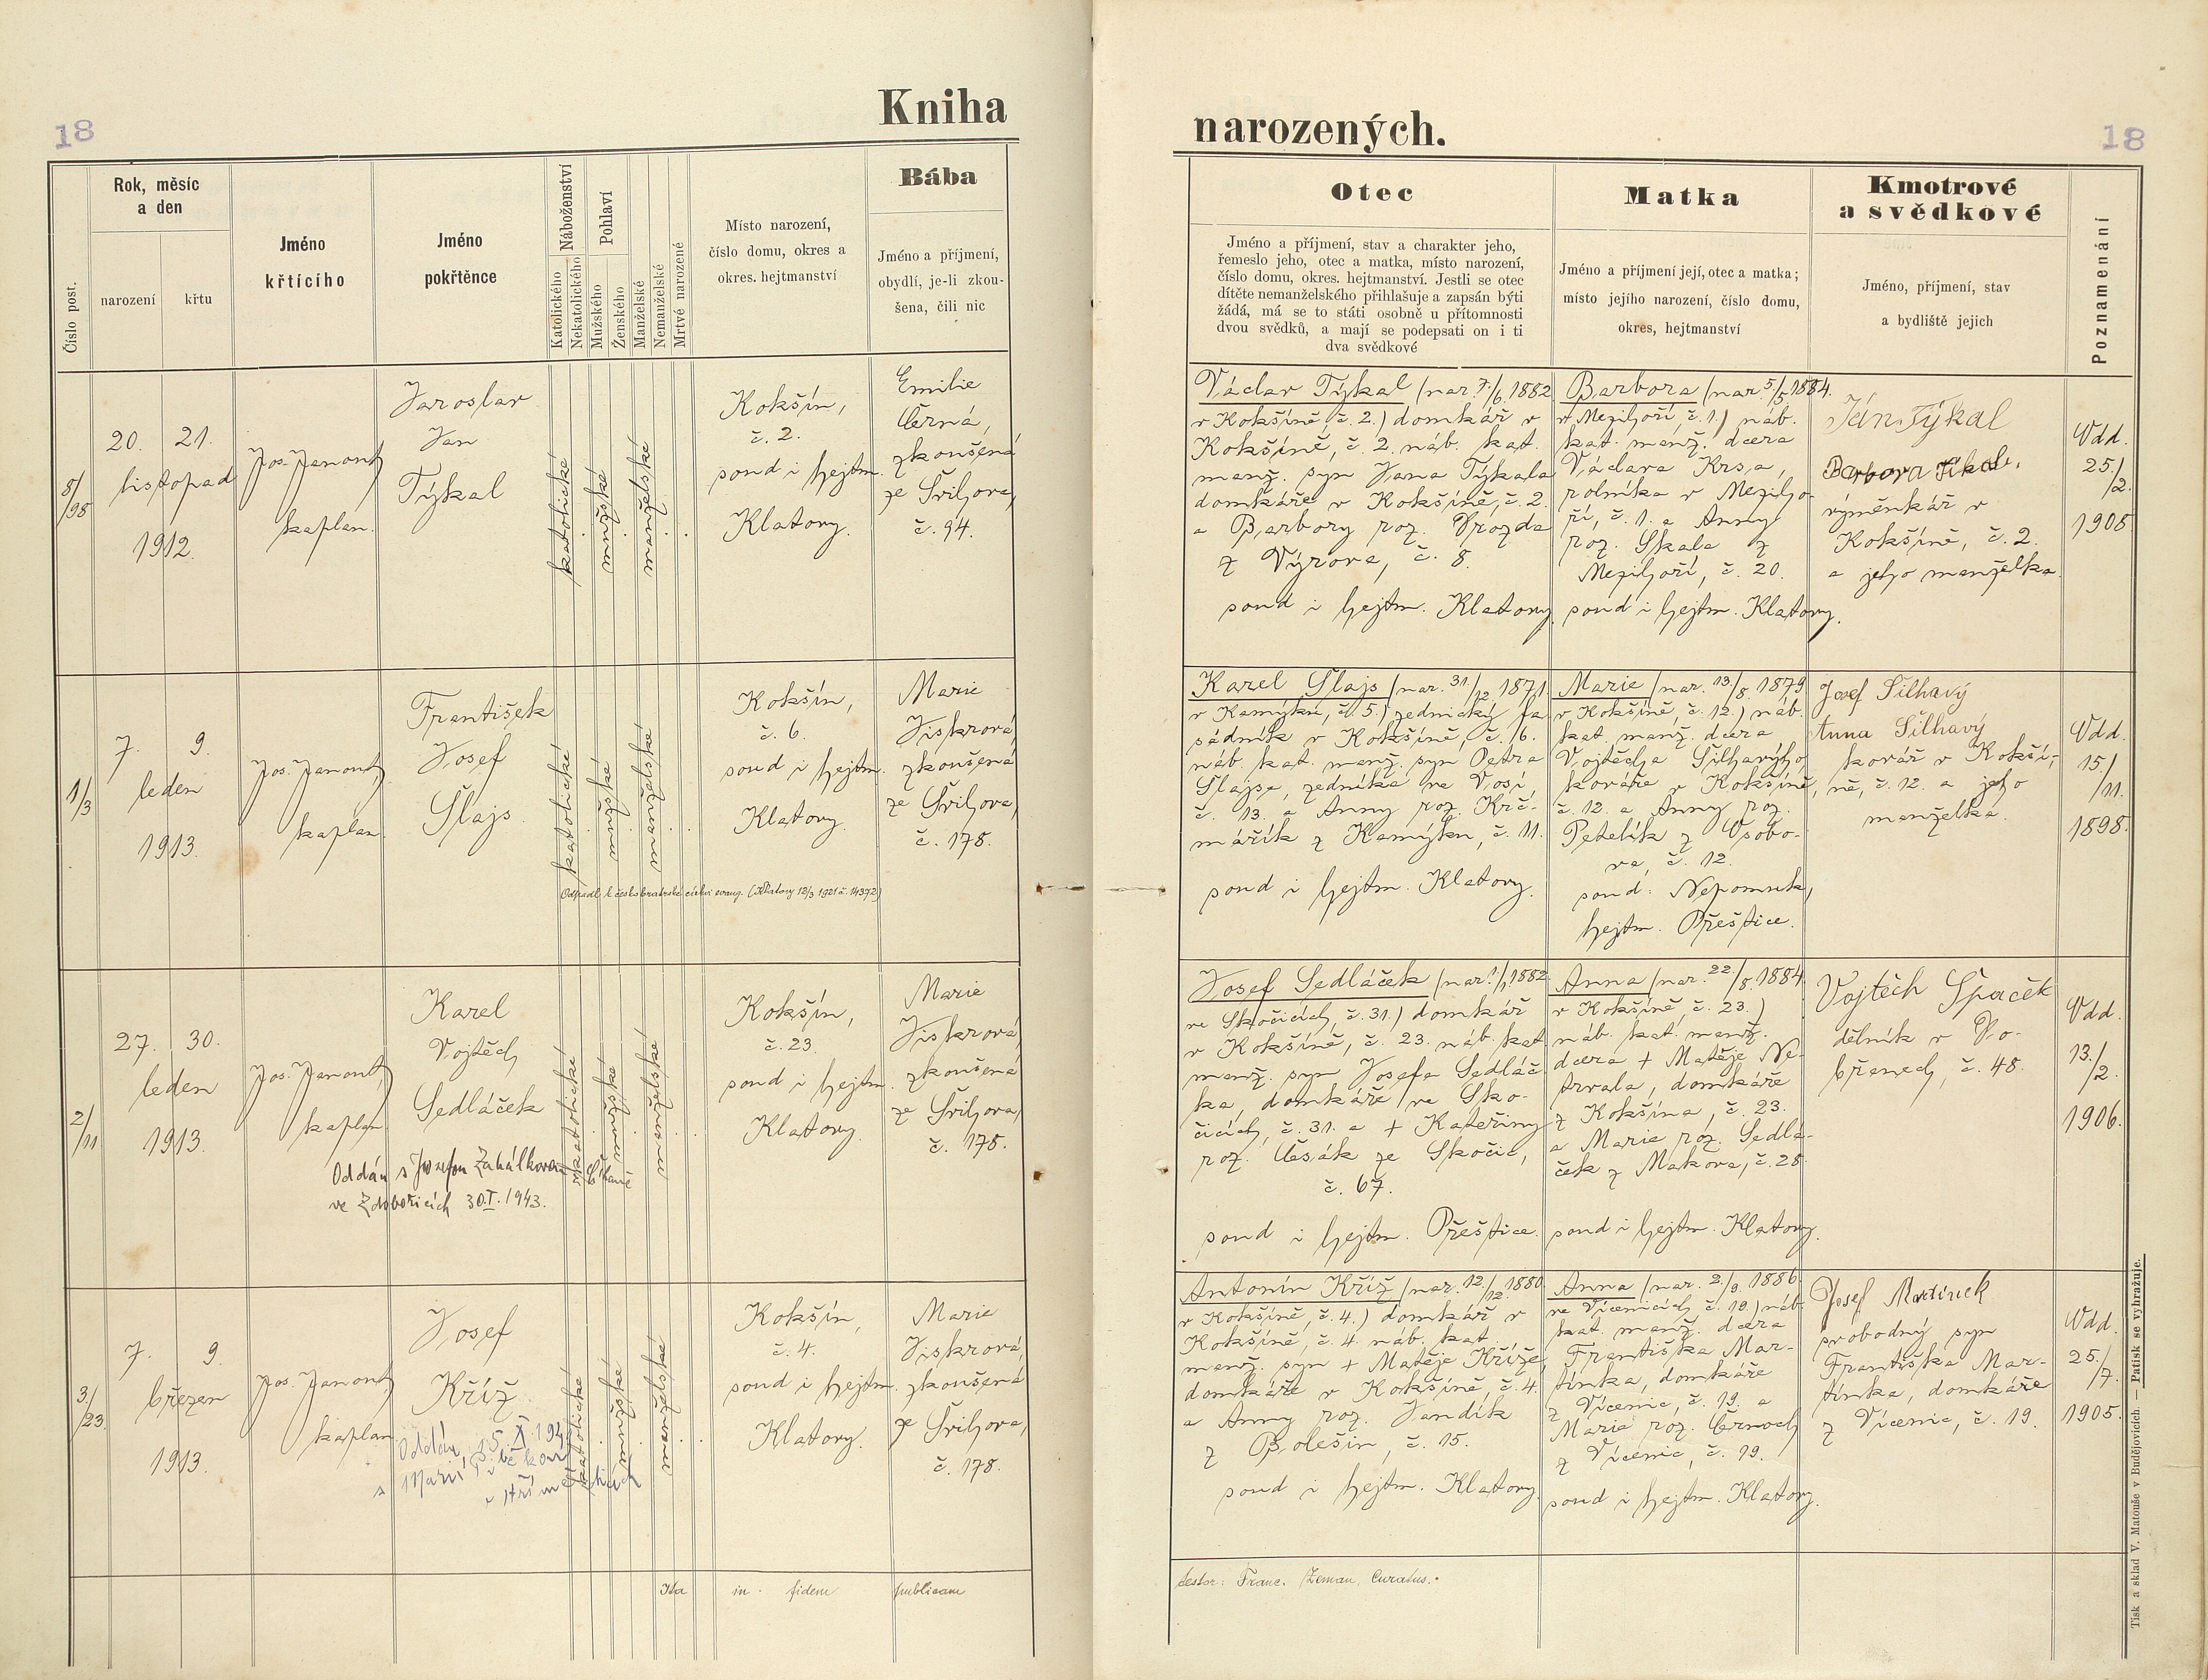 18
Kniha
Číslo post.
Rok, měsíc
a den
narození
křtu
Jméno
křtícího
Jméno
pokřtěnce
Náboženství
Katolického
Nekatolického
Pohlaví
Mužského
Ženského
Manželské
Nemanželské
Mrtvé narozené
Místo narození,
číslo domu, okres a
okres. hejtmanství
Bába
Jméno a příjmení,
obydlí, je-li zkou-
šena, čili nic
5/98
20. 21.
listopad
1912.
Jos. Jamont
kaplan.
Jaroslav
Jan
Týkal
katolické
mužské
manželské
Kokšín,
č. 2.
soud i hejtm.
Klatovy.
Emilie
Černá,
zkoušená
ze Švihova,
č. 94.
1/3
7. 9.
leden
1913.
Jos. Jamont
kaplan.
František
Josef
Šlajs.
katolické
mužské
manželské
Kokšín,
č. 6.
soud i hejtm.
Klatovy.
Marie
Jiskrová,
zkoušená
ze Švihova,
č. 178.
Odpadl k českobratrské církvi evang. (Klatovy 12/3 1921 č. 14372)
2/11
27. 30.
leden
1913.
Jos. Jamont,
kaplan
Karel
Vojtěch
Sedláček
Oddán s Josefou Zahálkovou
ve Zdebořicích 30.I.1943.
katolické
mužské
manželské
Kokšín,
č. 23.
soud i hejtm.
Klatovy.
Marie
Jiskrová,
zkoušená
ze Švihova,
č. 178.
3/23.
7. 9.
březen
1913.
Jos. Jamont,
kaplan.
Josef
Kříž.
Oddán 15. X. 194
s Marií
katolické
mužské
manželské
Kokšín,
č. 4.
soud i hejtm.
Klatovy.
Marie
Jiskrová,
zkoušená
ze Švihova,
č. 178.
Ita in fidem publicam
narozených.
18
Otec
Jméno a příjmení, stav a charakter jeho,
řemeslo jeho, otec a matka, místo narození,
číslo domu, okres. hejtmanství. Jestli se otec
dítěte nemanželského přihlašuje a zapsán býti
žádá, má se to státi osobně u přítomnosti
dvou svědků, a mají se podepsati on i ti
dva svědkové
Matka
Jméno a příjmení její, otec a matka;
místo jejího narození, číslo domu,
okres, hejtmanství
Kmotrové
a svědkové
Jméno, příjmení, stav
a bydliště jejich
Poznamenání
Václav Týkal (nar. 7./6. 1882
v Kokšíně č. 2.) domkář v
Kokšíně, č. 2. náb. kat.
manž. syn Jana Týkala
domkáře v Kokšíně, č. 2.
a Barbory roz. Drozda
z Výrova, č. 8.
soud i hejtm. Klatovy.
Barbora (nar. 5./5. 1884.
v Mezihoří č. 1.) náb.
kat. manž. dcera
Václava Krsa,
rolníka v Meziho-
ří, č. 1. a Anny
roz. Skala z
Mezihoří, č. 20.
soud i hejtm. Klatovy.
Ján Týkal
Barbora Tikale.
výměnkář v
Kokšíně, č. 2.
a jeho manželka.
Odd.
25./2.
1908.
Karel Šlajs (nar. 31./12. 1871.
v Kamýku, č. 5.) zednický fa-
sádník v Kokšíně, č. 6.
náb. kat. manž. syn Petra
Šlajse, zedníka ve Vosí
č. 13. a Anny roz. Krč-
mářík z Kamýku, č. 11.
soud i hejtm. Klatovy.
Marie (nar. 13./8. 1879
v Kokšíně, č. 12.) náb.
kat. manž. dcera
Vojtěcha Šilhavýho,
kováře v Kokšíně,
č. 12. a Anny roz.
Petelík z Osobo-
va, č. 12.
soud: Nepomuk,
hejtm. Přeštice.
Josef Šilhavý
Anna Šilhavý
kovář v Kokší-
ně, č. 12. a jeho
manželka.
Odd.
15./11.
1898.
Josef Sedláček (nar. 1./1. 1882.
ve Skočicích, č. 31.) domkář
v Kokšíně, č. 23. náb. kat.
manž. syn Josefa Sedláč-
ka, domkáře ve Sko-
čicích, č. 31. a + Kateřiny
roz. Česák ze Skočic,
č. 67.
soud i hejtm. Přeštice.
Anna (nar. 22./8. 1884
v Kokšíně, č. 23.)
náb. kat. manž.
dcera + Matěje Ne-
trvala, domkáře
z Kokšína, č. 23.
a Marie roz. Sedlá-
ček z Makova, č. 28.
soud i hejtm. Klatovy.
Vojtěch Špaček
dělník v Do-
břenech, č. 48.
Odd.
13./2.
1906.
Antonín Kříž (nar. 12./12. 1880.
v Kokšíně, č. 4.) domkář v
Kokšíně, č. 4. náb. kat.
manž. syn + Matěje Kříže,
domkáře v Kokšíně, č. 4.
a Anny roz. Jandík
z Bolešin, č. 15.
soud i hejtm. Klatovy.
Anna (nar. 2./9. 1886.
ve Vícenicích, č. 19.) náb.
kat. manž. dcera
Františka Mar-
tínka, domkáře
z Vícenic, č. 19. a
Marie roz. Černoch
z Vícenic, č. 19.
soud i hejtm. Klatovy.
Josef Martínek
svobodný syn
Františka Mar-
tínka, domkáře
z Vícenic, č. 19.
Odd.
25./7.
1905.
testor: Franc. Zeman, Curatus.
Tisk a sklad V. Matouše v Budějovicích. — Patisk se vyhražuje.